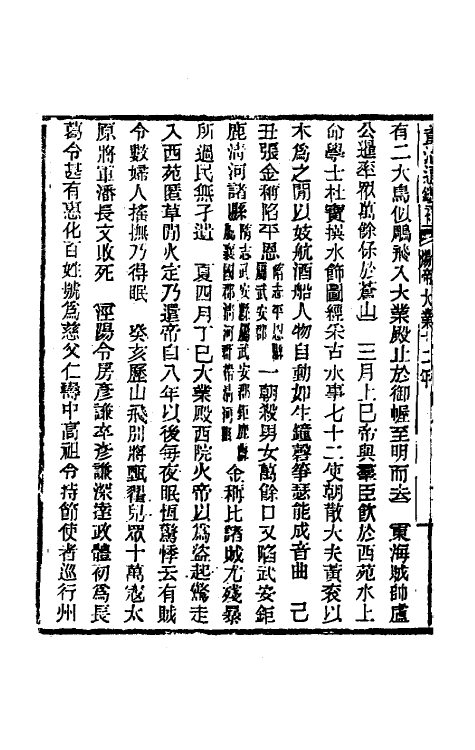 有二大鳥似鵰飛入大業殿止於御幄至明而去　東海賊帥盧
公暹率衆萬餘保於蒼山　三月上巳帝與羣臣飲於西苑水上
命學士杜寶撰水飾圖經采古水事七十二使朝散大夫黃袞以
木爲之閒以妓航酒船人物自動如生鐘磬箏瑟能成音曲　己
丑張金稱陷平恩隋志平恩縣屬武安郡一朝殺男女萬餘口又陷武安鉅
鹿清河諸縣隋志武安縣屬武安郡鉅鹿縣屬襄國郡清河縣帶清河郡金稱比諸賊尤殘暴
所過民無孑遺　夏四月丁巳大業殿西院火帝以爲盜起驚走
入西苑匿草閒火定乃還帝自八年以後每夜眠恆驚悸云有賊
令數婦人搖撫乃得眠　癸亥歷山飛別將甄翟兒眾十萬寇太
原將軍潘長文敗死　涇陽令房彥謙卒彥謙深達政體初爲長
葛令甚有惠化百姓號爲慈父仁壽中高祖令持節使者巡行州